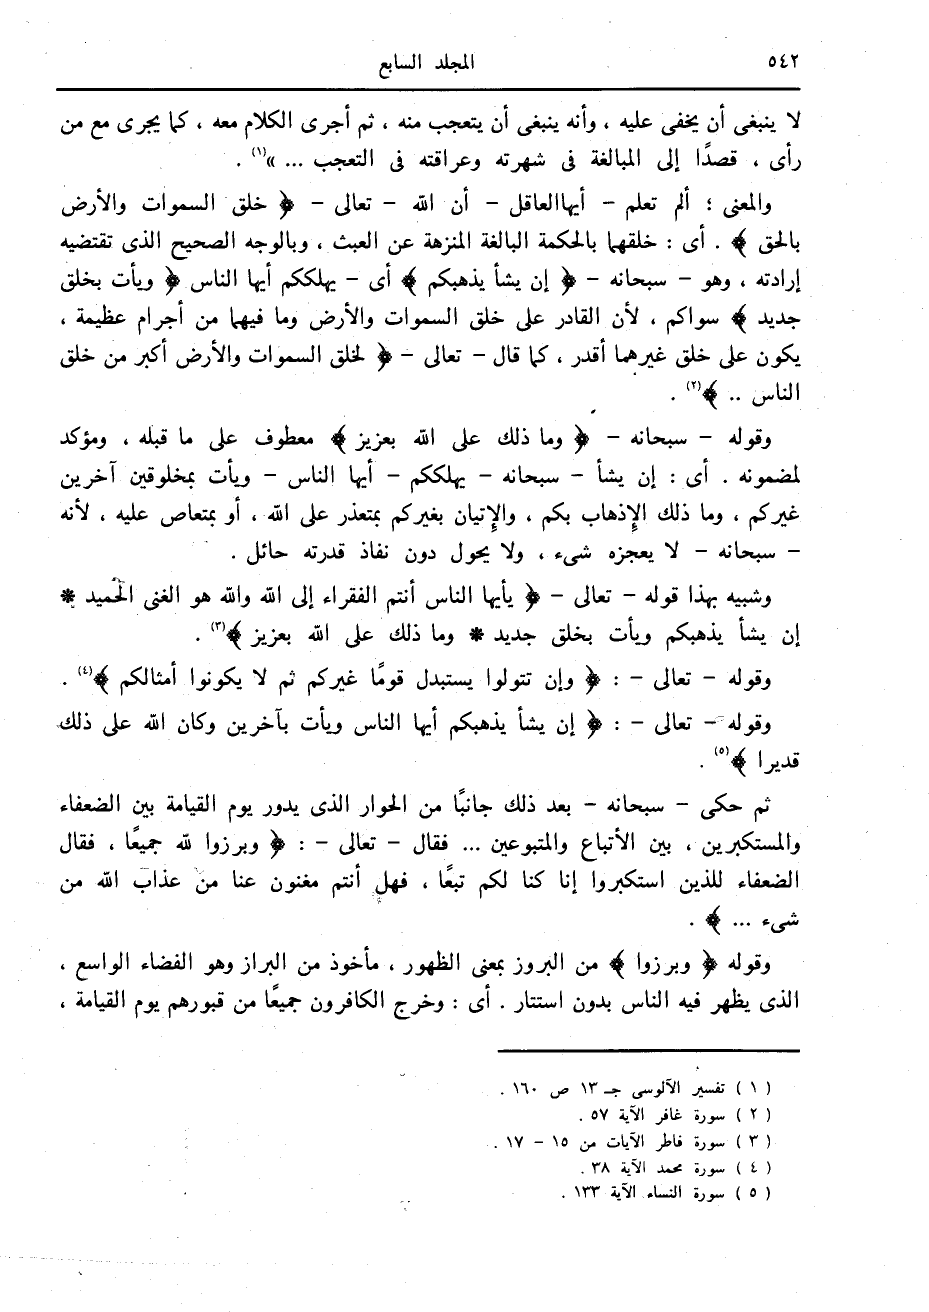 ٥٤٢ المجلد السابع
لا ينبغى أن يخفى عليه ، وأنه ينبغى أن يتعجب منه ، ثم أجرى الكلام معه ، كما يجرى مع من
رأى ، قصدًا إلى المبالغة فى شهرته وعراقته فى التعجب ... »(١) .
والمعنى ؛ ألم تعلم – أيها العاقل – أن الله – تعالى – ﴿ خلق السموات والأرض
بالحق ﴾ . أى : خلقهما بالحكمة البالغة المنزهة عن العبث ، وبالوجه الصحيح الذى تقتضيه
إرادته ، وهو – سبحانه – ﴿ إن يشأ يذهبكم ﴾ أى – يهلككم أيها الناس ﴿ ويأت بخلق
جديد ﴾ سواكم ، لأن القادر على خلق السموات والأرض وما فيهما من أجرام عظيمة ،
يكون على خلق غيرهما أقدر ، كما قال – تعالى – ﴿ لخلق السموات والأرض أكبر من خلق
الناس .. ﴾(٢) .
وقوله – سبحانه – ﴿ وما ذلك على الله بعزيز ﴾ معطوف على ما قبله ، ومؤكد
لمضمونه . أى : إن يشأ – سبحانه – يهلككم – أيها الناس – ويأت بمخلوقين آخرين
غيركم ، وما ذلك الإذهاب بكم ، والإتيان بغيركم بمتعذر على الله ، أو بمتعاص عليه ، لأنه
– سبحانه – لا يعجزه شىء ، ولا يحول دون نفاذ قدرته حائل .
وشبيه بهذا قوله – تعالى – ﴿ يأيها الناس أنتم الفقراء إلى الله والله هو الغنى الحَميد *
إن يشأ يذهبكم ويأت بخلق جديد * وما ذلك على الله بعزيز ﴾(٣) .
وقوله – تعالى – : ﴿ وإن تتولوا يستبدل قومًا غيركم ثم لا يكونوا أمثالكم ﴾(٤) .
وقوله – تعالى – : ﴿ إن يشأ يذهبكم أيها الناس ويأت بآخرين وكان الله على ذلك
قديرا ﴾(٥) .
ثم حكى – سبحانه – بعد ذلك جانبًا من الحوار الذى يدور يوم القيامة بين الضعفاء
والمستكبرين ، بين الأتباع والمتبوعين ... فقال – تعالى – : ﴿ وبرزوا لله جميعًا ، فقال
الضعفاء للذين استكبروا إنا كنا لكم تبعًا ، فهل أنتم مغنون عنا من عذاب الله من
شىء ... ﴾ .
وقوله ﴿ وبرزوا ﴾ من البروز بمعنى الظهور ، مأخوذ من البراز وهو الفضاء الواسع ،
الذى يظهر فيه الناس بدون استتار . أى : وخرج الكافرون جميعًا من قبورهم يوم القيامة ،
( ١ ) تفسير الآلوسى جـ ١٣ ص ١٦٠ .
( ٢ ) سورة غافر الآية ٥٧ .
( ٣ ) سورة فاطر الآيات من ١٥ – ١٧ .
( ٤ ) سورة محمد الآية ٣٨ .
( ٥ ) سورة النساء الآية ١٣٣ .